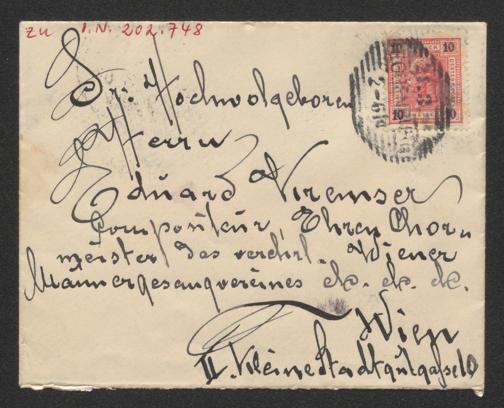 zu I.N. 202.748
Sr. Hochwolgeboren
Herrn
Eduard Kremser
Compositeur, Ehren Chor-
meister des verehrl. Wiener
Männergesangvereines etc. etc. etc.
Wien
II. Kleine Stadtgutgasse 10
10 10
10 10